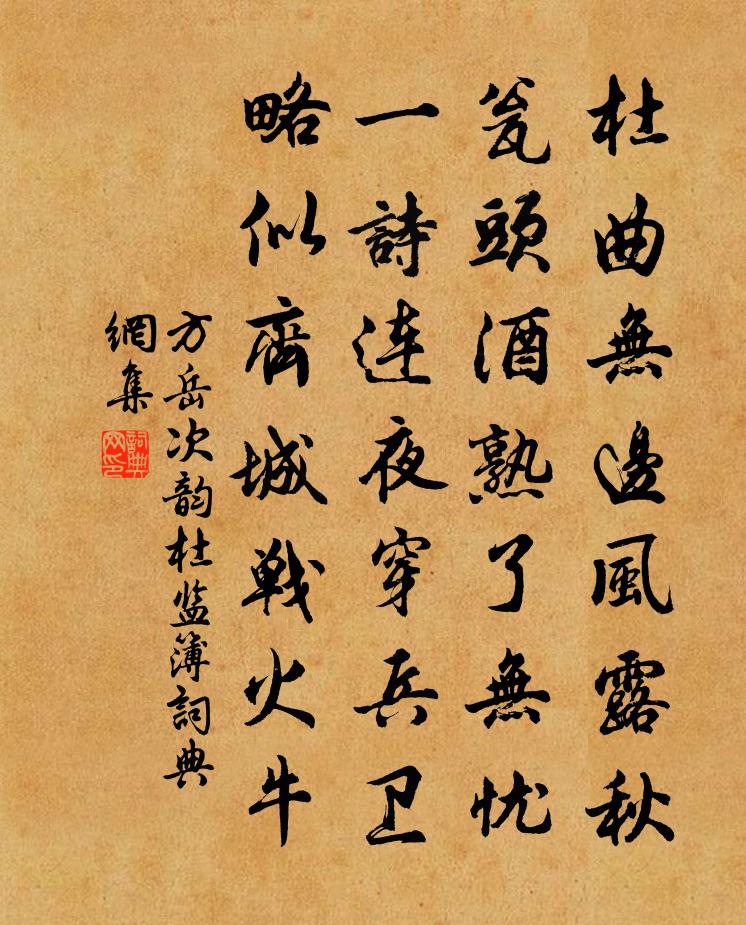 杜曲無邊風露秋
瓮頭酒熟了無忧
一詩連夜穿兵卫
略似齊城戦火牛
方岳次韵杜监簿詞典
網集
詞典网印